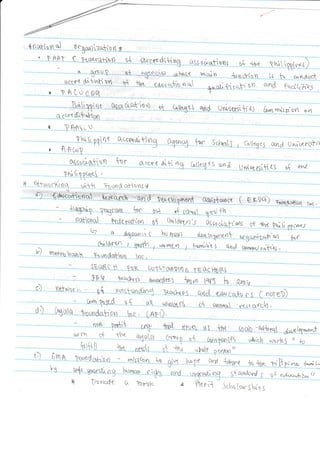 * national organizations
• FAAP ( Federation of accrediting associations of the Philippines)
- a group of agencies whose main function is to conduct
accreditation of the educational qualification and facilities
• PACUCOA
Philippine association of colleges and Universities commission on
accreditation
• PAASCU
Philippine accrediting agency for Schools, Colleges and Universities
• AACUP
association for accrediting colleges and Universities of the
Philippines.
* Networking with Foundations
a) Educational research and Development assistance (ERDA) Foundation Inc.
- flagship program for out of school youth
- national federation of children's associations of the Philippines
- a dynamic human development organization for
children, youth, women, families and communities.
b) metrobank Foundation Inc.
- SEARCH FOR OUTSTANDING TEACHERS
- teachers awardees from 1985 to
c) network of outstanding teachers and educators (NOTED)
- composed of all
d) ayala Foundation Inc. (AFI)
- non profit org. that serves as the socio-cultural development
arm of the ayala Group of companies which works "to
fulfill the needs of the whole person"
e) GMA Foundation - mission to give hope and future to the Filipino
by safeguarding human rights and upgrading standards of education
* Donate a * Merit Scholarships